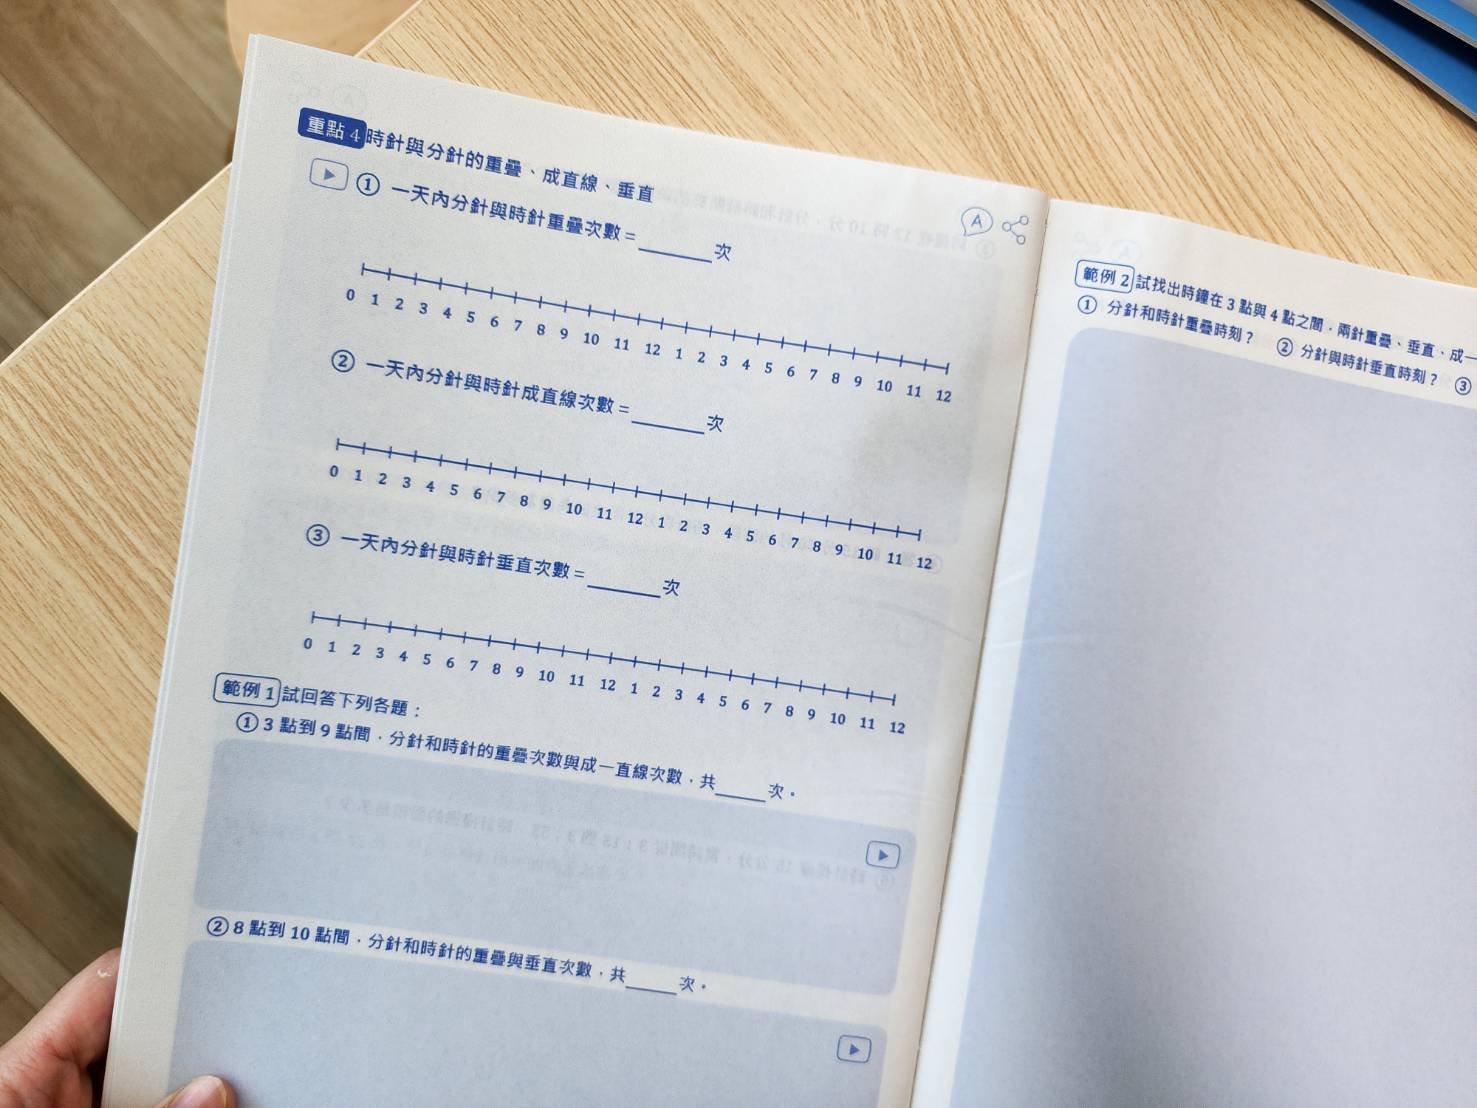 重點 4 時針與分針的重疊、成直線、垂直
① 一天內分針與時針重疊次數=______次
0 1 2 3 4 5 6 7 8 9 10 11 12 1 2 3 4 5 6 7 8 9 10 11 12
② 一天內分針與時針成直線次數=______次
0 1 2 3 4 5 6 7 8 9 10 11 12 1 2 3 4 5 6 7 8 9 10 11 12
③ 一天內分針與時針垂直次數=______次
0 1 2 3 4 5 6 7 8 9 10 11 12 1 2 3 4 5 6 7 8 9 10 11 12
範例 1 試回答下列各題：
① 3 點到 9 點間，分針和時針的重疊次數與成一直線次數，共____次。
② 8 點到 10 點間，分針和時針的重疊與垂直次數，共____次。
A
範例 2 試找出時鐘在 3 點與 4 點之間，兩針重疊、垂直、成一
① 分針和時針重疊時刻？ ② 分針與時針垂直時刻？ ③